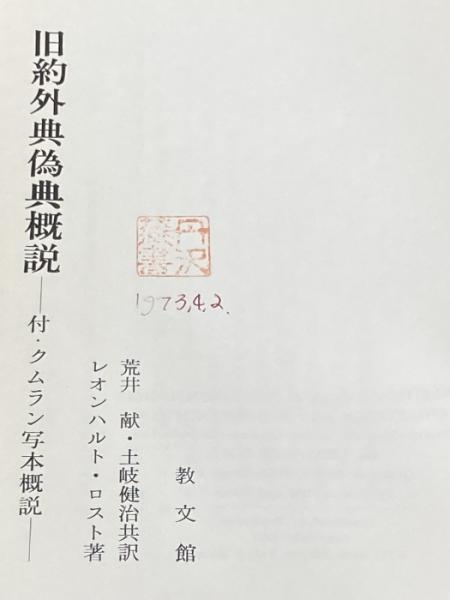 旧約外典偽典概説
―付・クムラン写本概説―
レオンハルト・ロスト著
荒井 献・土岐健治共訳
教文館
1973,4,2.